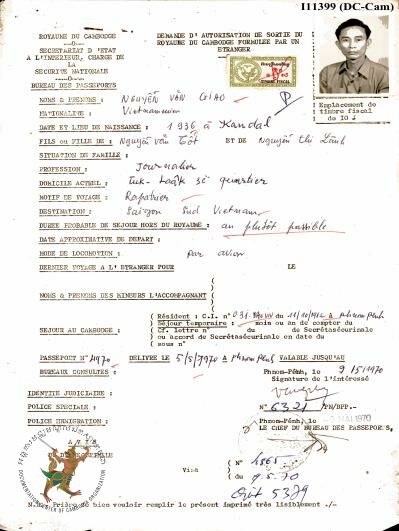 I11399 (DC-Cam)
ROYAUME DU CAMBODGE
SECRETARIAT D'ETAT
A L'INTERIEUR, CHARGE DE
LA SECURITE NATIONALE
BUREAU DES PASSEPORTS
DEMANDE D'AUTORISATION DE SORTIE DU
ROYAUME DU CAMBODGE FORMULEE PAR UN
ETRANGER
Emplacement de
timbre fiscal
de 10 J
NOMS & PRENOMS : NGUYỄN VĂN GIAO
NATIONALITE : Vietnamienne
DATE ET LIEU DE NAISSANCE : 1936 à Kandal
FILS ou FILLE DE : Nguyễn văn Tốt ET DE Nguyễn thị Lành
SITUATION DE FAMILLE :
PROFESSION : Journalier
DOMICILE ACTUEL : Tuk-Laâk 3è quartier
MOTIF DE VOYAGE : Rapatrier
DESTINATION : Saigon Sud Vietnam
DUREE PROBABLE DE SEJOUR HORS DU ROYAUME : au plutôt possible
DATE APPROXIMATIVE DU DEPART :
MODE DE LOCOMOTION : par avion
DERNIER VOYAGE A L'ETRANGER POUR LE
NOMS & PRENOMS DES MINEURS L'ACCOMPAGNANT
SEJOUR AU CAMBODGE :
Résident : C.I. n° du à Phnom Penh
Séjour temporaire : mois ou an de compter du
Cf. lettre n° du de Secrétasécurinale
ou accord de Secrétasécurinale en date du
sous n°
PASSEPORT N° 4970 DELIVRE LE 5/5/1970 à Phnom Penh VALABLE JUSQU'AU
BUREAUX CONSULTES :
Phnom-Pénh, le 9/5/1970
Signature de l'intéressé
IDENTITE JUDICIAIRE :
POLICE SPECIALE :
POLICE IMMIGRATION :
N° 6321 /PN/BPP.-
Phnom-Pénh, le MAI 1970
LE CHEF DU BUREAU DES PASSEPORTS,
Visa
( N° 4565
( du 9.5.70
5379
DOCUMENTATION CENTER OF CAMBODIA ORGANIZATION
bien vouloir remplir le présent imprimé très lisiblement ./-